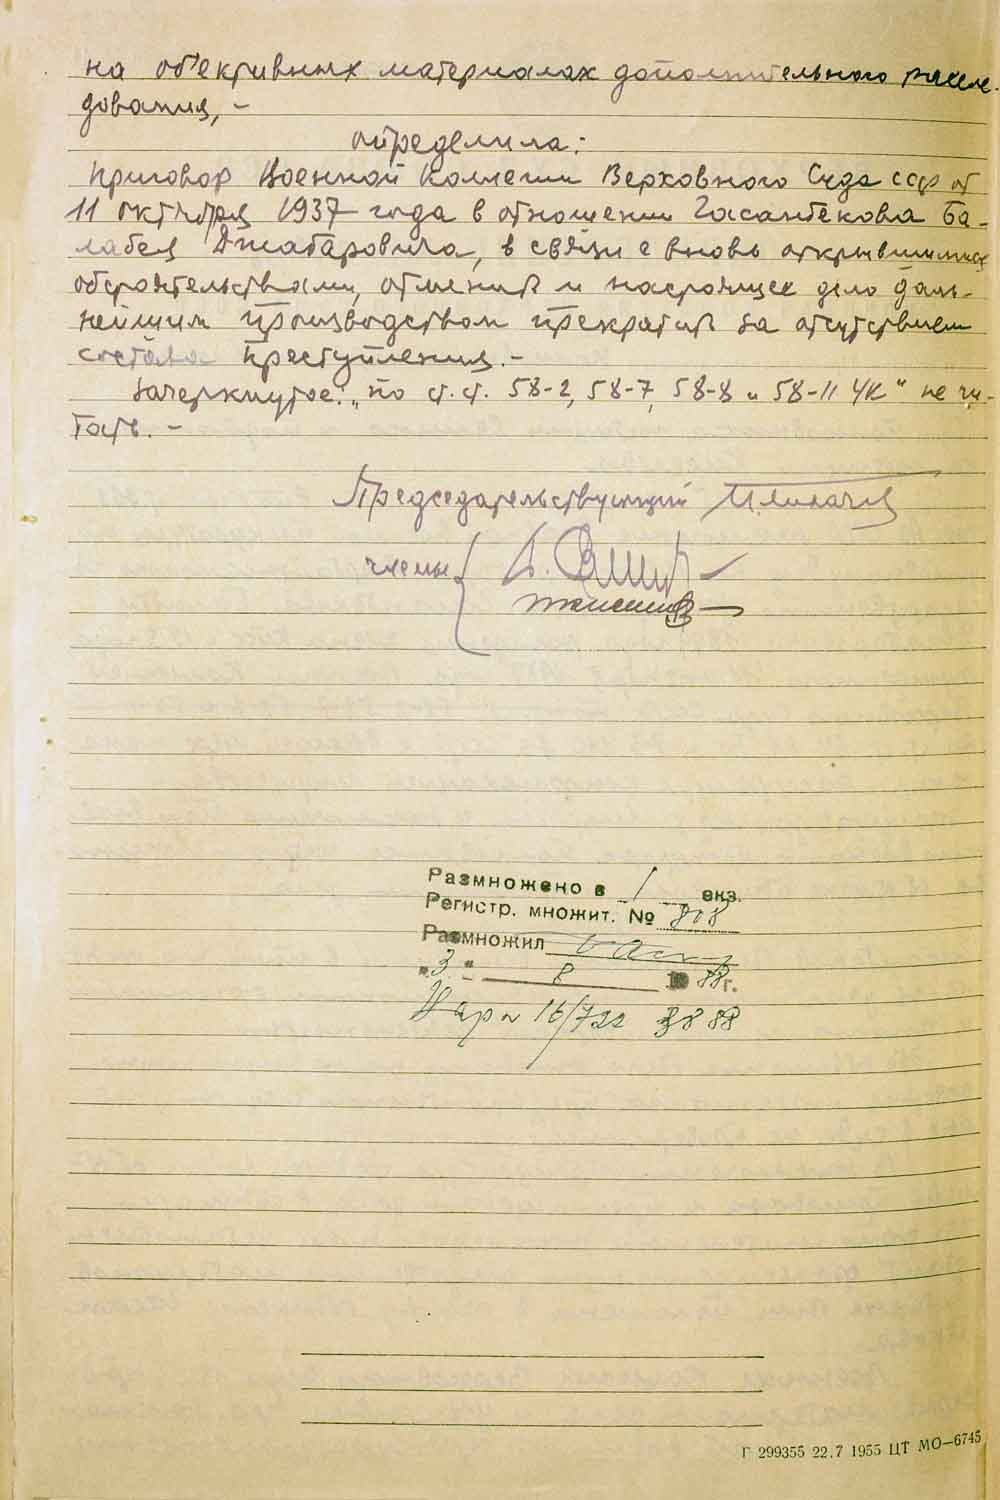 на объективных материалах дополнительного рассле-
дования, –
определила:
Приговор Военной Коллегии Верховного Суда ССР от
11 октября 1937 года в отношении Гасанбекова Ба-
лабея Джабаровича, в связи с вновь открывшимися
обстоятельствами, отменить и настоящее дело даль-
нейшим производством прекратить за отсутствием
состава преступления. –
Зачеркнутое: „по ст.ст. 58-2, 58-7, 58-8 и 58-11 УК" не чи-
тать. –
Председательствующий
члены
Размножено в 1 экз.
Регистр. множит. № 808
Размножил
„3" 8 1988г.
16/722 88
Г 299355 22.7 1955 ЦТ МО—6745